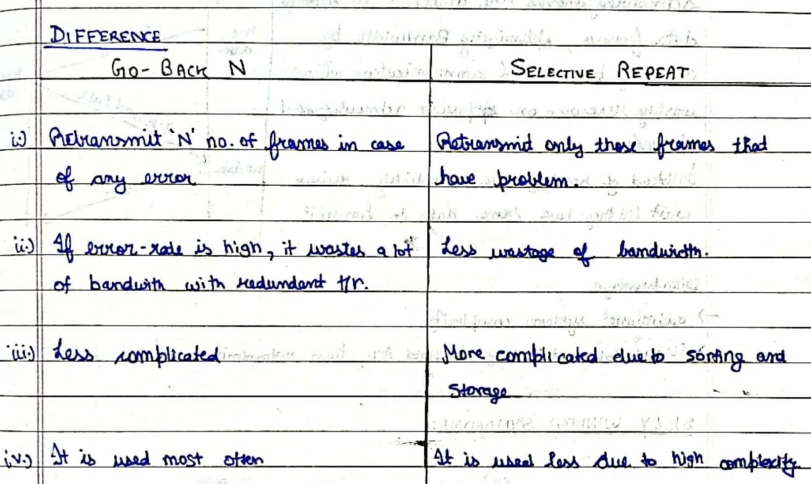 DIFFERENCE
GO-BACK N
SELECTIVE REPEAT
i.) Retransmit 'N' no. of frames in case
of any error
Retransmid only those frames that
have problem.
ii.) If error-rate is high, it wastes a lot
of bandwith with redundant t/r.
Less wastage of bandwidth.
iii.) Less complicated
More complicated due to sorting and
storage
iv.) It is used most often
It is used less due to high complexity